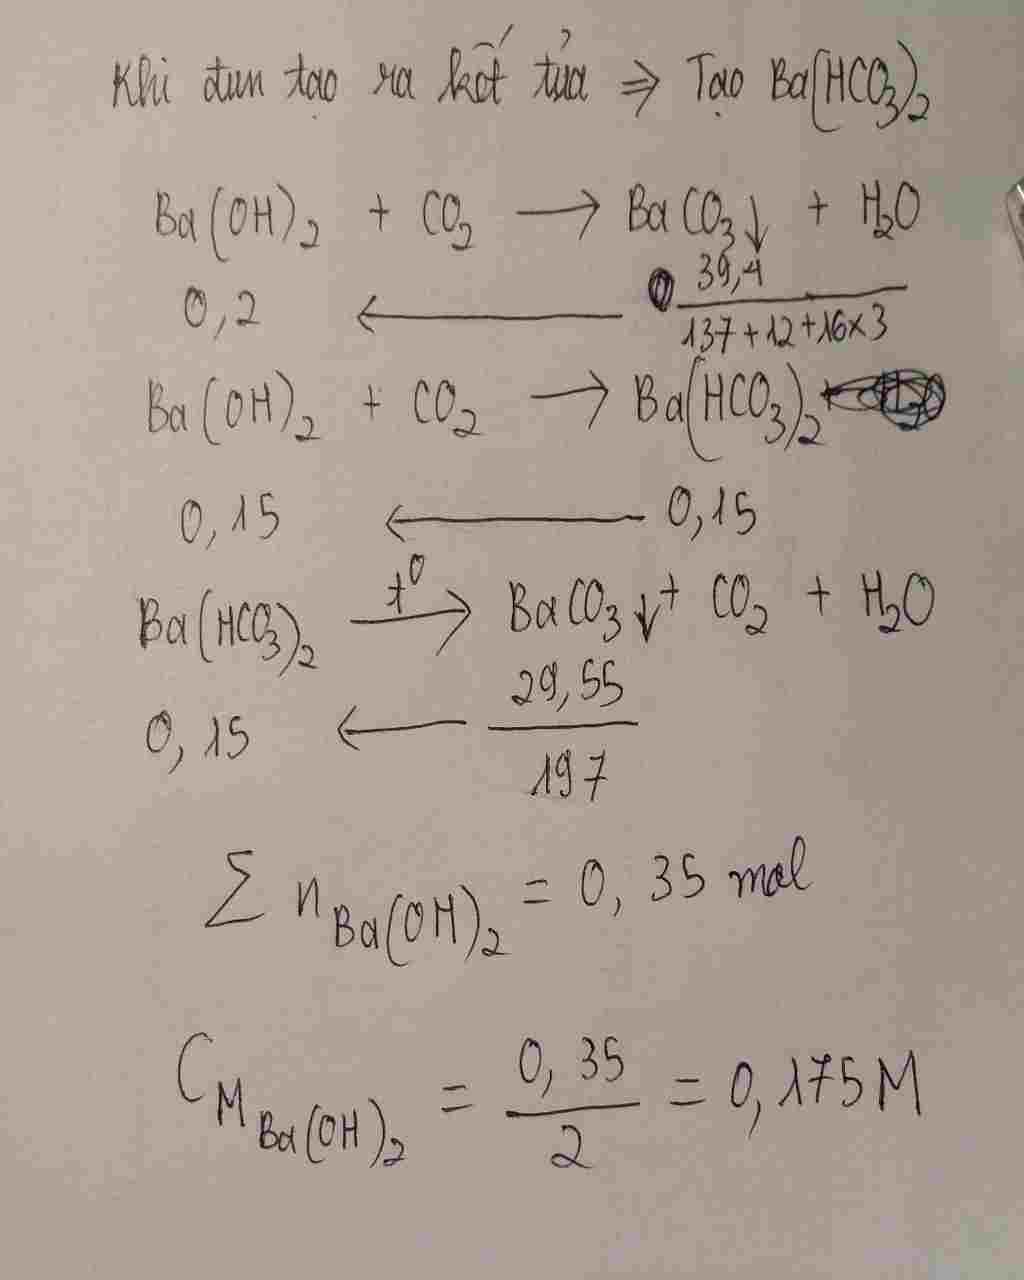 Khi đun tạo ra kết tủa ⇒ Tạo Ba(HCO₃)₂
Ba(OH)₂ + CO₂ → BaCO₃↓ + H₂O
0,2 ← 39,4 / 137+12+16×3
Ba(OH)₂ + CO₂ → Ba(HCO₃)₂
0,15 ← 0,15
Ba(HCO₃)₂ —t⁰→ BaCO₃↓ + CO₂ + H₂O
0,15 ← 29,55 / 197
Σ n Ba(OH)₂ = 0,35 mol
C_M Ba(OH)₂ = 0,35 / 2 = 0,175M